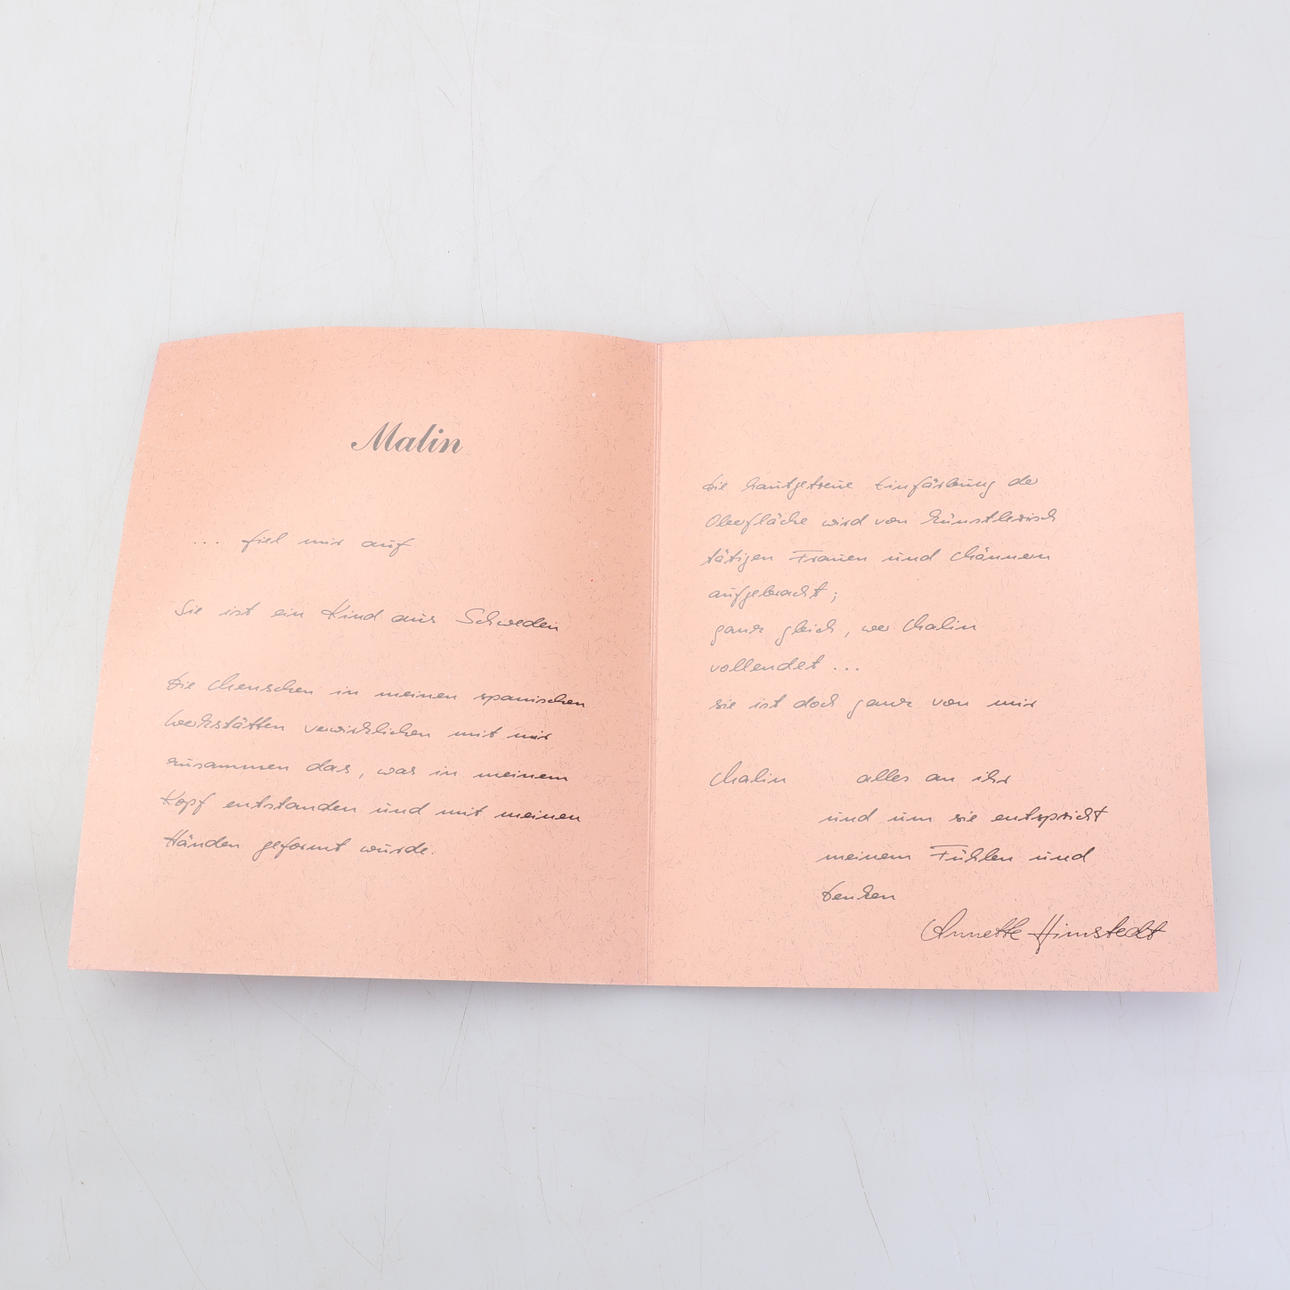 Malin
... fiel mir auf
Sie ist ein Kind aus Schweden
Die Menschen in meinen spanischen
Werkstätten verwirklichen mit mir
zusammen das, was in meinem
Kopf entstanden und mit meinen
Händen geformt wurde.
Die hautgetreue Einfärbung der
Oberfläche wird von künstlerisch
tätigen Frauen und Männern
aufgebracht;
ganz gleich, wer Malin
vollendet ...
sie ist doch ganz von mir
Malin alles an ihr
und um sie entspricht
meinem Fühlen und
Denken
Annette Himstedt